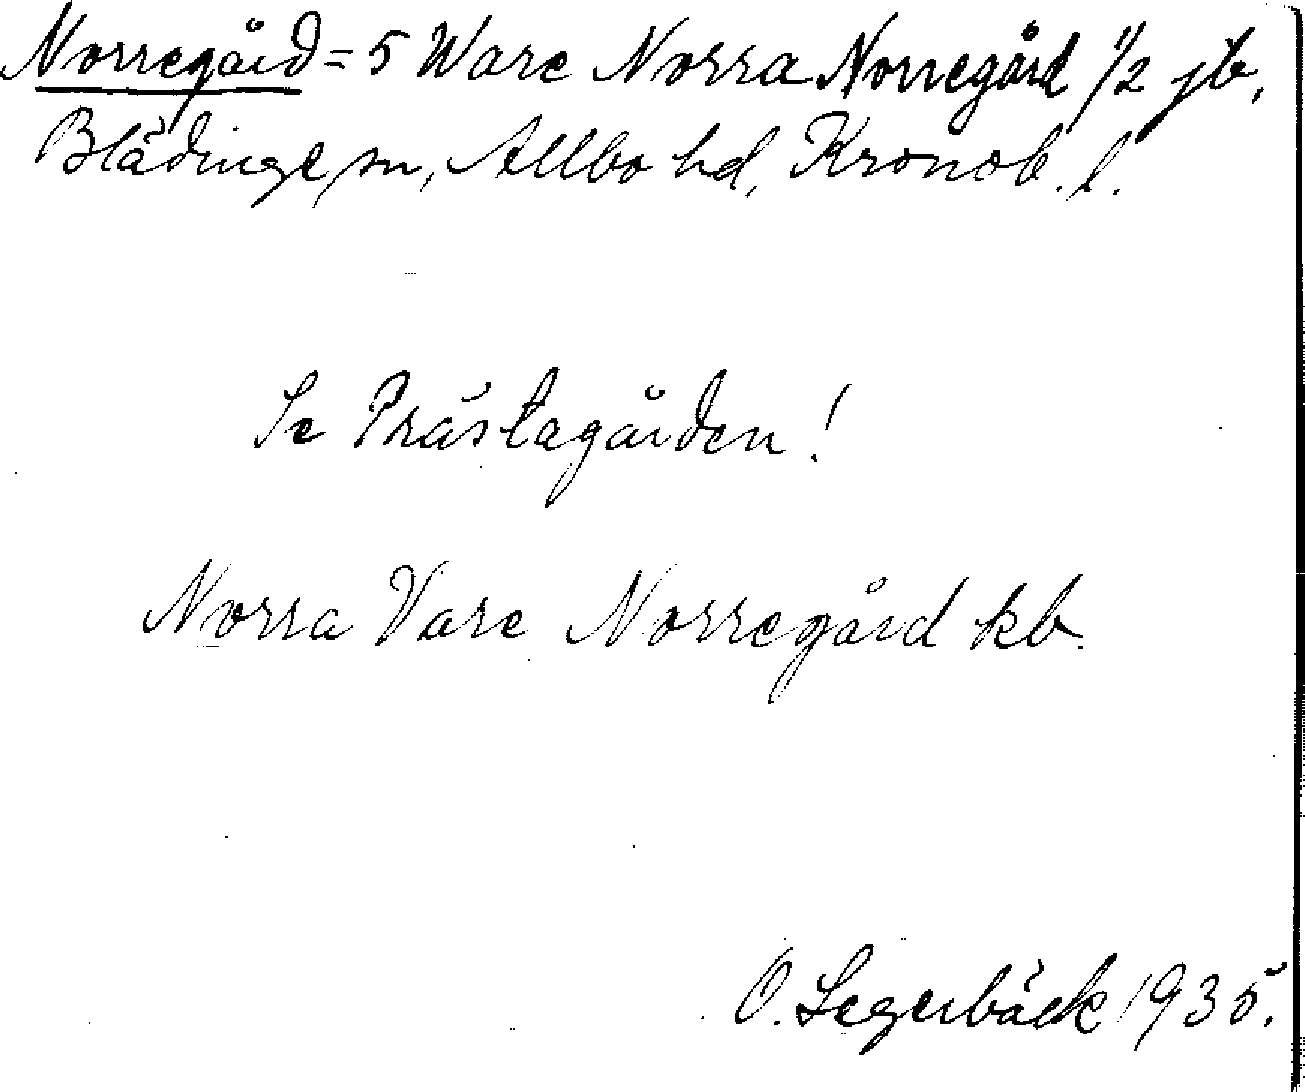 Norregård = 5 Ware Norra Norregård 1/2 jb.
Blädinge sn, Allbo hd, Kronob. l.
Se Prästagården!
Norra Vare Norregård kb.
O. Segerbäck 1935.